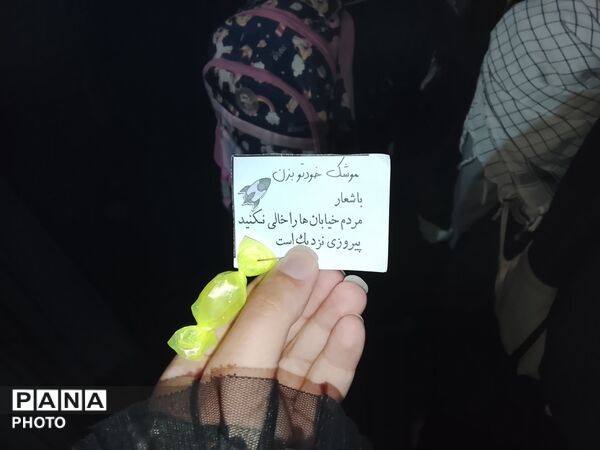 موشک خودتو بزن
با شعار
مردم خیابان ها را خالی نکنید
پیروزی نزدیک است
PANA
PHOTO